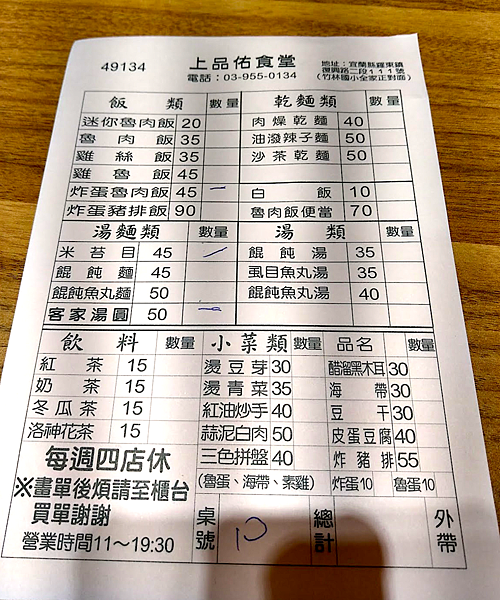 49134 上品佑食堂 地址：宜蘭縣羅東鎮
電話：03-955-0134 復興路二段111號
(竹林國小全家正對面)
飯類 數量 乾麵類 數量
迷你魯肉飯 20 肉燥乾麵 40
魯肉飯 35 油潑辣子麵 50
雞絲飯 35 沙茶乾麵 50
雞魯飯 45
炸蛋魯肉飯 45 一 白飯 10
炸蛋豬排飯 90 魯肉飯便當 70
湯麵類 數量 湯類 數量
米苔目 45 一 餛飩湯 35
餛飩麵 45 虱目魚丸湯 35
餛飩魚丸麵 50 餛飩魚丸湯 40
客家湯圓 50 一
飲料 數量 小菜類 數量 品名 數量
紅茶 15 燙豆芽 30 醋溜黑木耳 30
奶茶 15 燙青菜 35 海帶 30
冬瓜茶 15 紅油炒手 40 豆干 30
洛神花茶 15 蒜泥白肉 50 皮蛋豆腐 40
每週四店休 三色拼盤 40 炸豬排 55
(魯蛋、海帶、素雞) 炸蛋10 魯蛋10
※畫單後煩請至櫃台
買單謝謝
營業時間11～19:30 桌號 10 總計 外帶